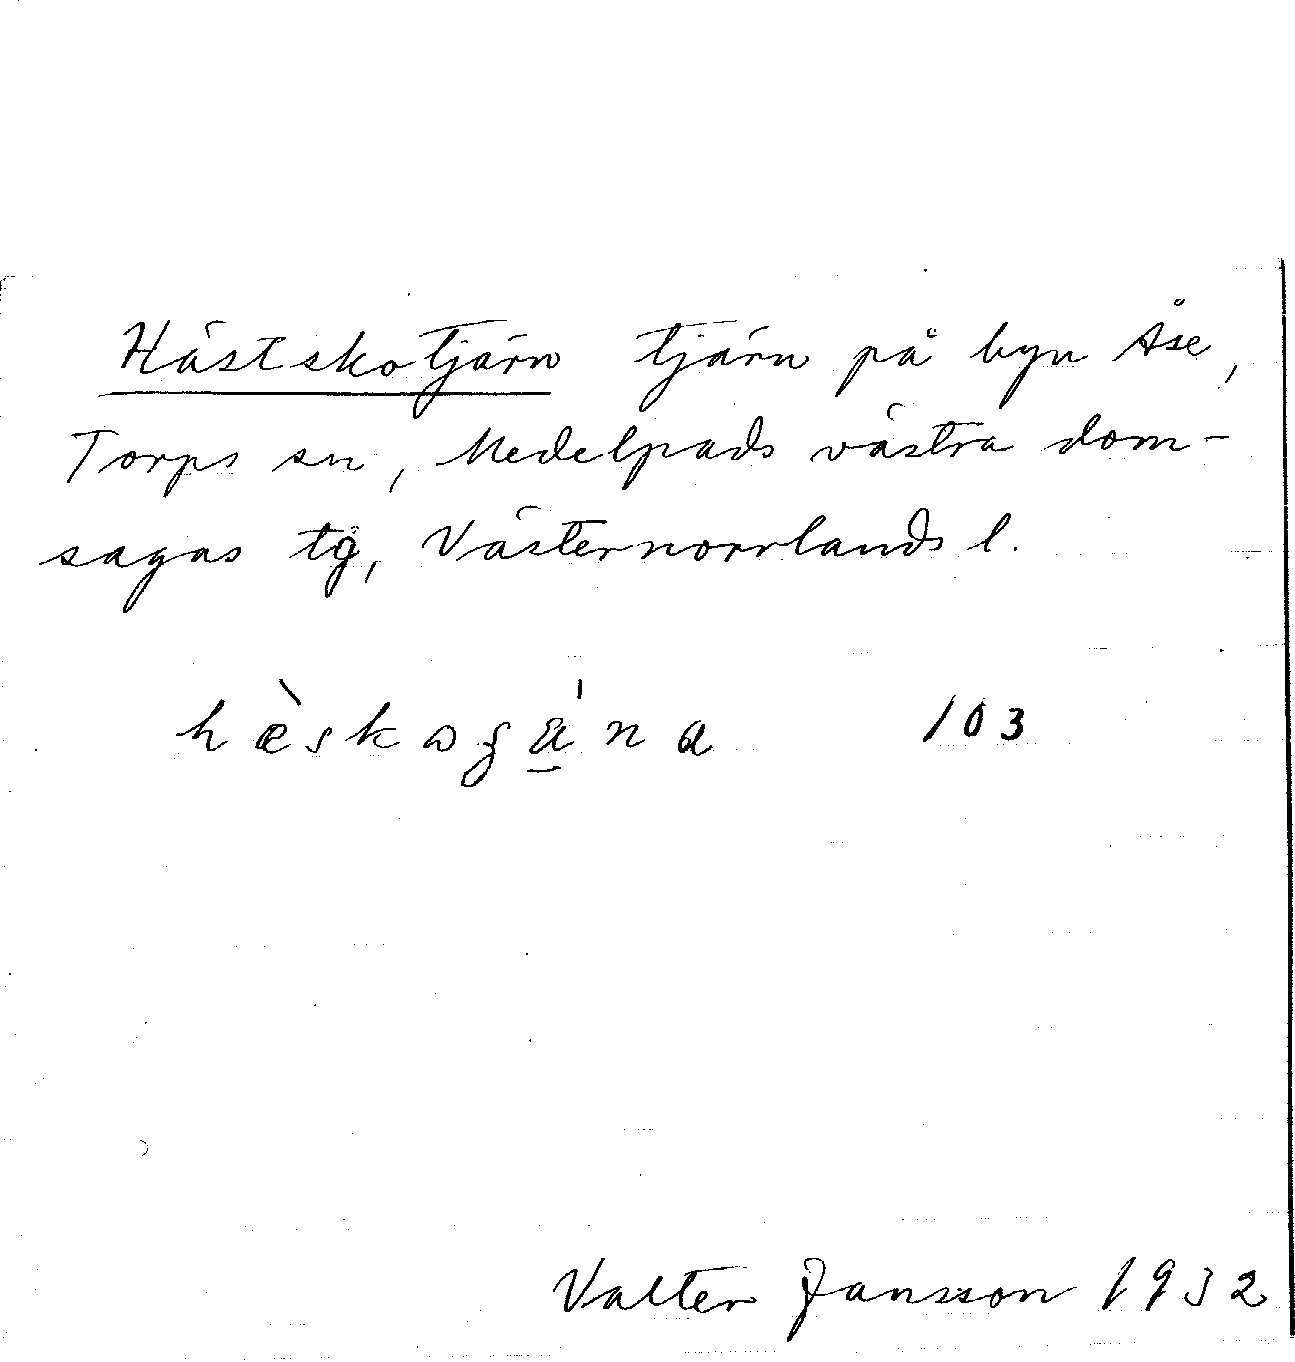 Hästskotjärn tjärn på byn Åse,
Torps sn, Medelpads västra dom-
sagas tg, Västernorrlands l.
103
Valter Jansson 1932